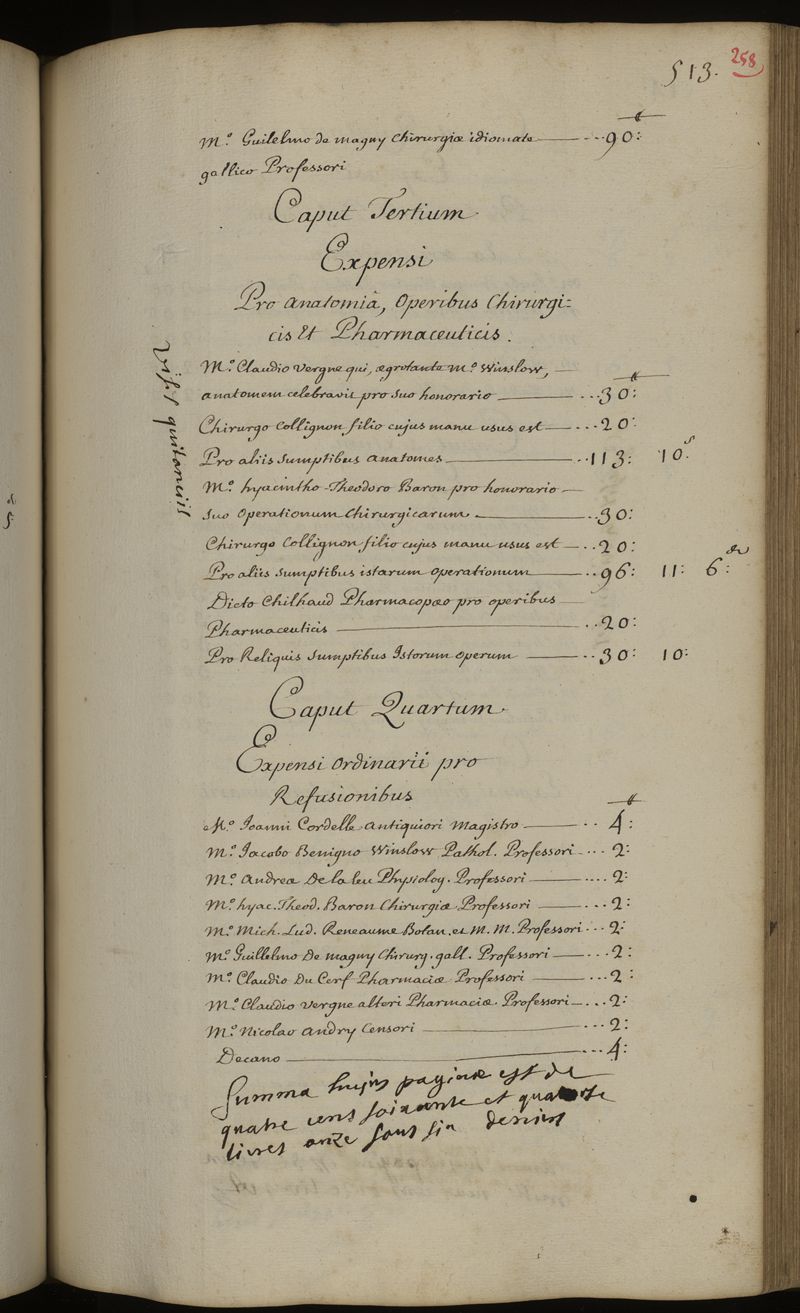 513.
258
₶
M.º Guilelmo de magny Chirurgiæ idiomate ---90:
gallico Professori
Caput Tertium
Expensi
Pro anatomiâ, operibus Chirurgi=
cis Et Pharmaceuticis.
M.º Claudio Vergne qui, ægrotante M.º Winslow,
₶
anatomen celebravit pro suo honorario ---30:
Chirurgo Collignon filio cujus manu usus est ---20:
Pro aliis Sumptibus anatomes --113: 10.s
M.º hyacintho-Theodoro Baron pro honorario
Suo Operationum Chirurgicarum --30:
Chirurgo Collignon filio cujus manu usus est --20:
Pro aliis Sumptibus istarum operationum --96: 11: 6:
Dicto Chilhaud Pharmacopæo pro operibus
Pharmaceuticis --20:
Pro Reliquis Sumptibus Istorum operum --30: 10:
Caput Quartum
Expensi ordinarii pro
Refusionibus
₶
M.º Joanni Cordelle antiquiori Magistro -- 4:
M.º Jacobo Benigno Winslow Pathol. Professori --- 2:
M.º Andreæ De la leu Physiolog. Professori ---- 2:
M.º hyac. Theod. Baron Chirurgiæ Professori --- 2:
M.º Mich. Lud. Reneaume Botan. et M. M. Professori --- 2:
M.º Guillelmo De magny Chirurg. gall. Professori --- 2:
M.º Claudio Du Cerf Pharmaciæ Professori --- 2:
M.º Claudio Vergne alteri Pharmaciæ Professori --- 2:
M.º Nicolao Andry Censori --- 2:
Decano --- 4:
Summa hujus paginæ est de
quatre cens soixante et quatorze
livres onze sous six deniers